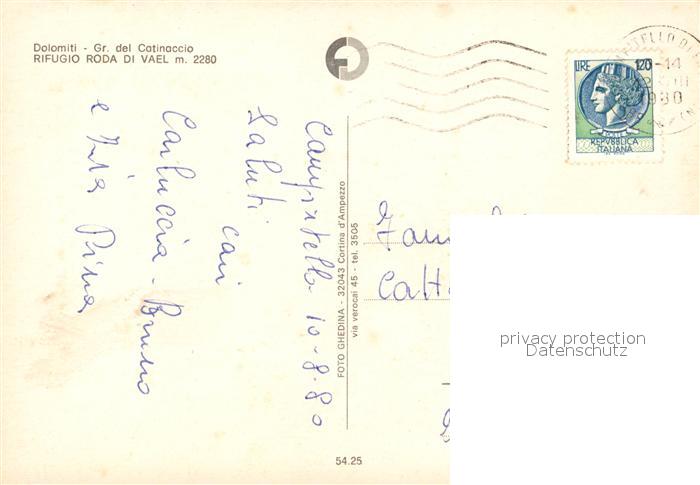 Dolomiti - Gr. del Catinaccio
RIFUGIO RODA DI VAEL m. 2280
Campitello 10-8-80
Saluti
cari
Carluccia - Bruno
e Zia Pina
FOTO GHEDINA - 32043 Cortina d'Ampezzo
via verocai 45 - tel. 3505
54.25
LIRE 120
REPVBBLICA
ITALIANA
privacy protection
Datenschutz